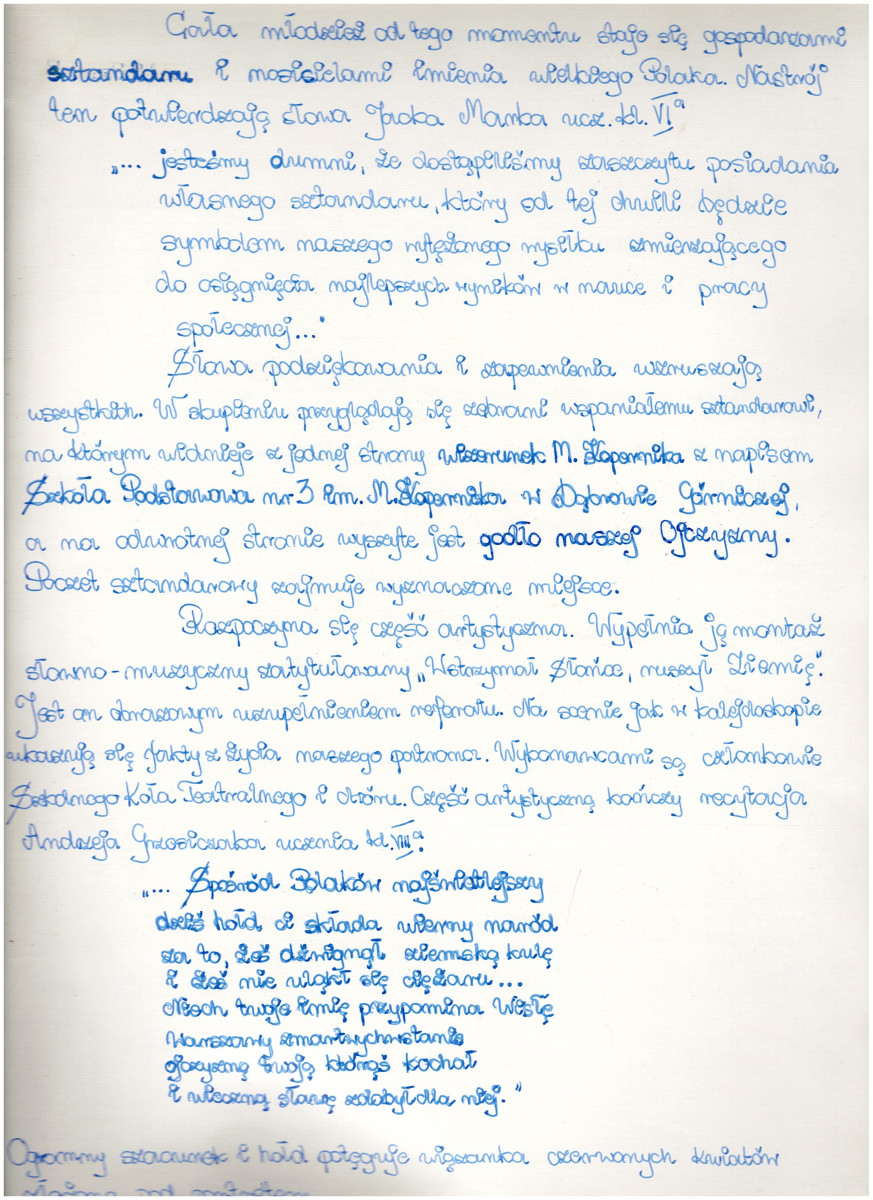 Cała młodzież od tego momentu staje się gospodarzami
sztandaru i nosicielami imienia wielkiego Polaka. Nastrój
ten potwierdzają słowa Jacka Marka ucz. kl. VIa
„... jesteśmy dumni, że dostąpiliśmy zaszczytu posiadania
własnego sztandaru, który od tej chwili będzie
symbolem naszego wytężonego wysiłku zmierzającego
do osiągnięcia najlepszych wyników w nauce i pracy
społecznej..."
Słowa podziękowania i zapewnienia wzruszają
wszystkich. W skupieniu przyglądają się zebrani wspaniałemu sztandarowi,
na którym widnieje z jednej strony wizerunek M. Kopernika z napisem
Szkoła Podstawowa nr 3 im. M. Kopernika w Dąbrowie Górniczej,
a na odwrotnej stronie wyszyte jest godło naszej Ojczyzny.
Poczet sztandarowy zajmuje wyznaczone miejsce.
Rozpoczyna się część artystyczna. Wypełnia ją montaż
słowno-muzyczny zatytułowany „Wstrzymał Słońce, ruszył Ziemię".
Jest on obrazowym uzupełnieniem referatu. Na scenie jak w kalejdoskopie
ukazują się fakty z życia naszego patrona. Wykonawcami są członkowie
Szkolnego Koła Teatralnego i chóru. Część artystyczną kończy recytacja
Andrzeja ucznia kl. VIIIa
„... Spośród Polaków najświetlejszy
dziś hołd ci składa wierny naród
za to, żeś dźwignął ziemską kulę
i żeś nie uląkł się ciężaru...
Niech twoje imię przypomina Wisłę
Warszawy zmartwychwstanie
ojczyznę twoją którąś kochał
i wieczną sławę zdobył dla niej."
Ogromny szacunek i hołd potęguje wiązanka czerwonych kwiatów